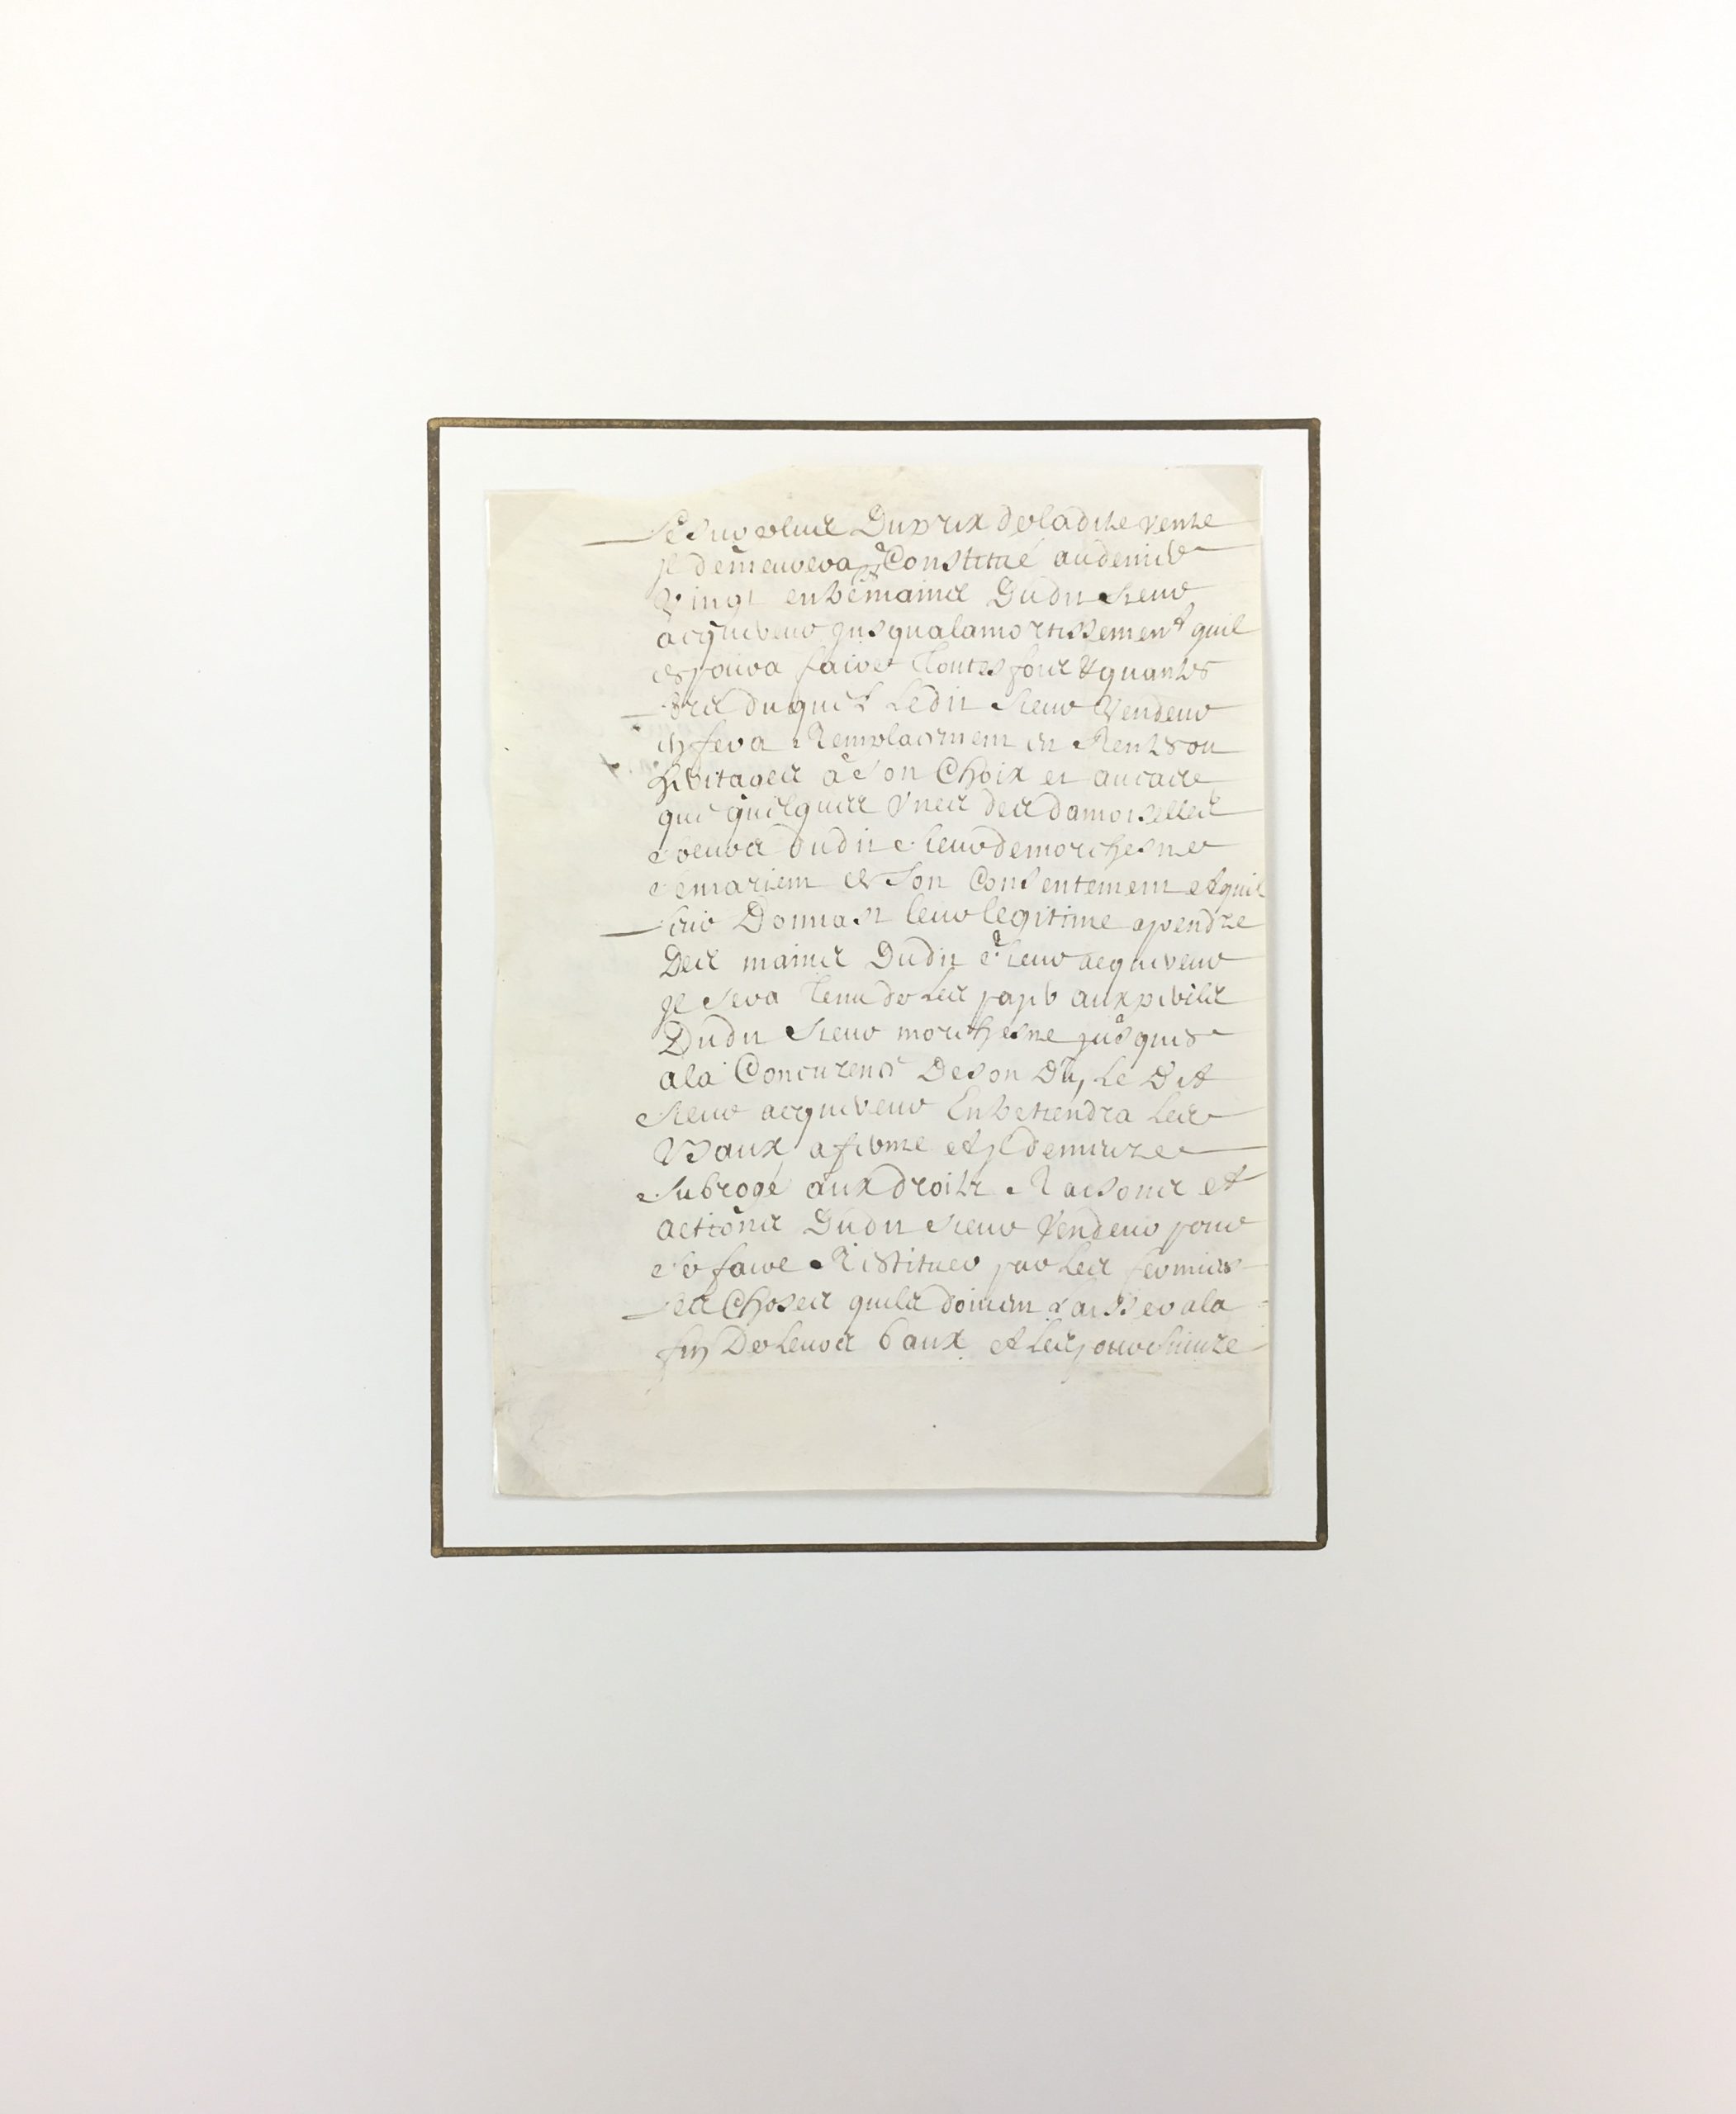 Le surplus Du prix de ladite vente
Il demeurera Constitué au denier
Vingt entre mains Dudit sieur
acquereur jusqualamortissement quil
en poura faire touttes fois & quantes
duquel Ledit sieur Vendeur
en fera Remplacement en Rentes ou
heritages a son Choix et au cas
que quelques Unes des damoiselles
soeurs dudit sieur de morchesne
se marient de son Consentement et quil
leur Donnast leur legitime a prendre
Des mains Dudit sieur acquereur
Il sera tenu de Les payer aux
Dudit sieur morchesne jusques
a la Concurence De son Du, Le Dit
sieur acquereur Entretiendra Les
Baux a ferme et Il demeure
subrogé aux droits Raisons et
actions Dudit sieur Vendeur pour
se faire Restituer par Les fermiers
les Choses quils doivent Laisser a la
fin De Leurs baux et Les poursuivre